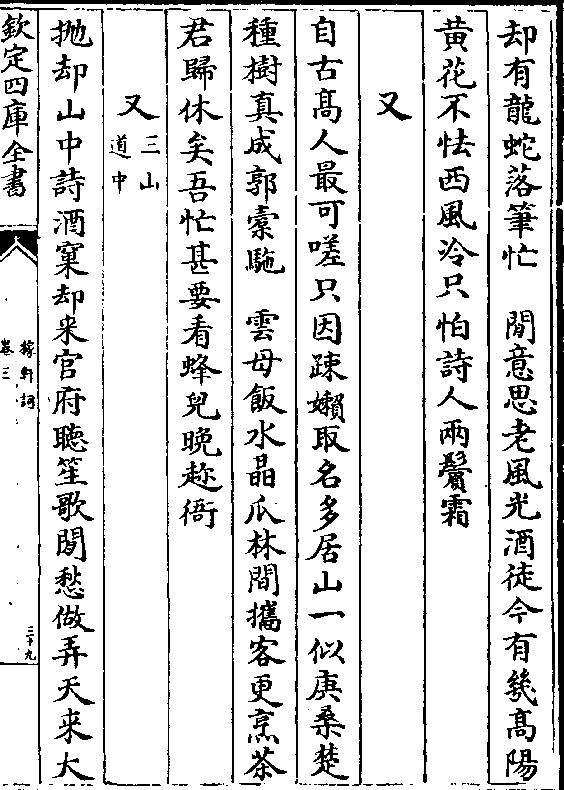 却有龍蛇落筆忙　閒意思老風光酒徒今有幾髙陽
黃花不怯西風冷只怕詩人兩鬢霜
又
自古髙人最可嗟只因疎嬾取名多居山一似庚桑楚
種樹真成郭橐駞　雲母飯水晶瓜林間攜客更烹茶
君歸休矣吾忙甚要看蜂兒晚趂衙
又三山道中
抛却山中詩酒窠却来官府聽笙歌閒愁做弄天来大
欽定四庫全書
稼軒詞
卷三
三十九